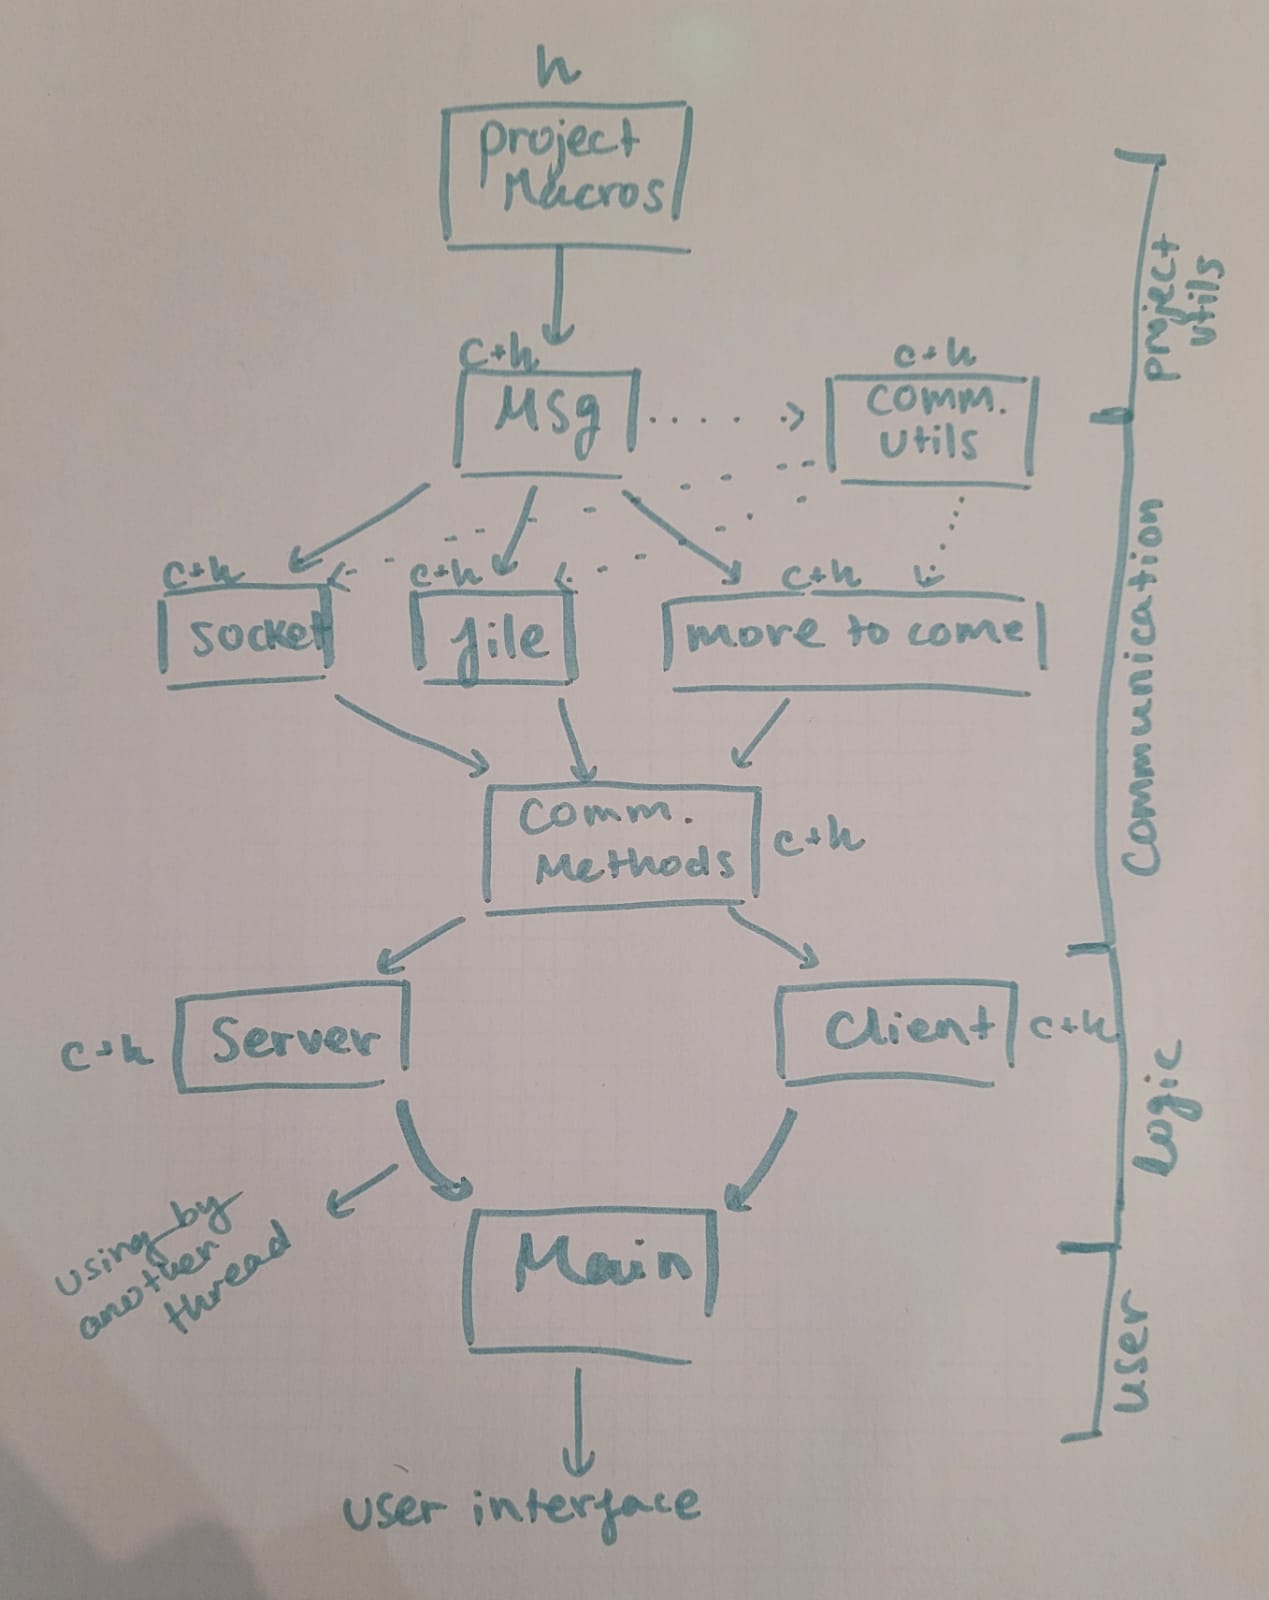 h
project
Macros
c+h
Msg
c+h
comm.
utils
c+h
socket
c+h
file
c+h
more to come
comm.
Methods
c+h
c+h
Server
Client
c+h
using by
another
thread
Main
user interface
project
utils
Communication
Logic
user